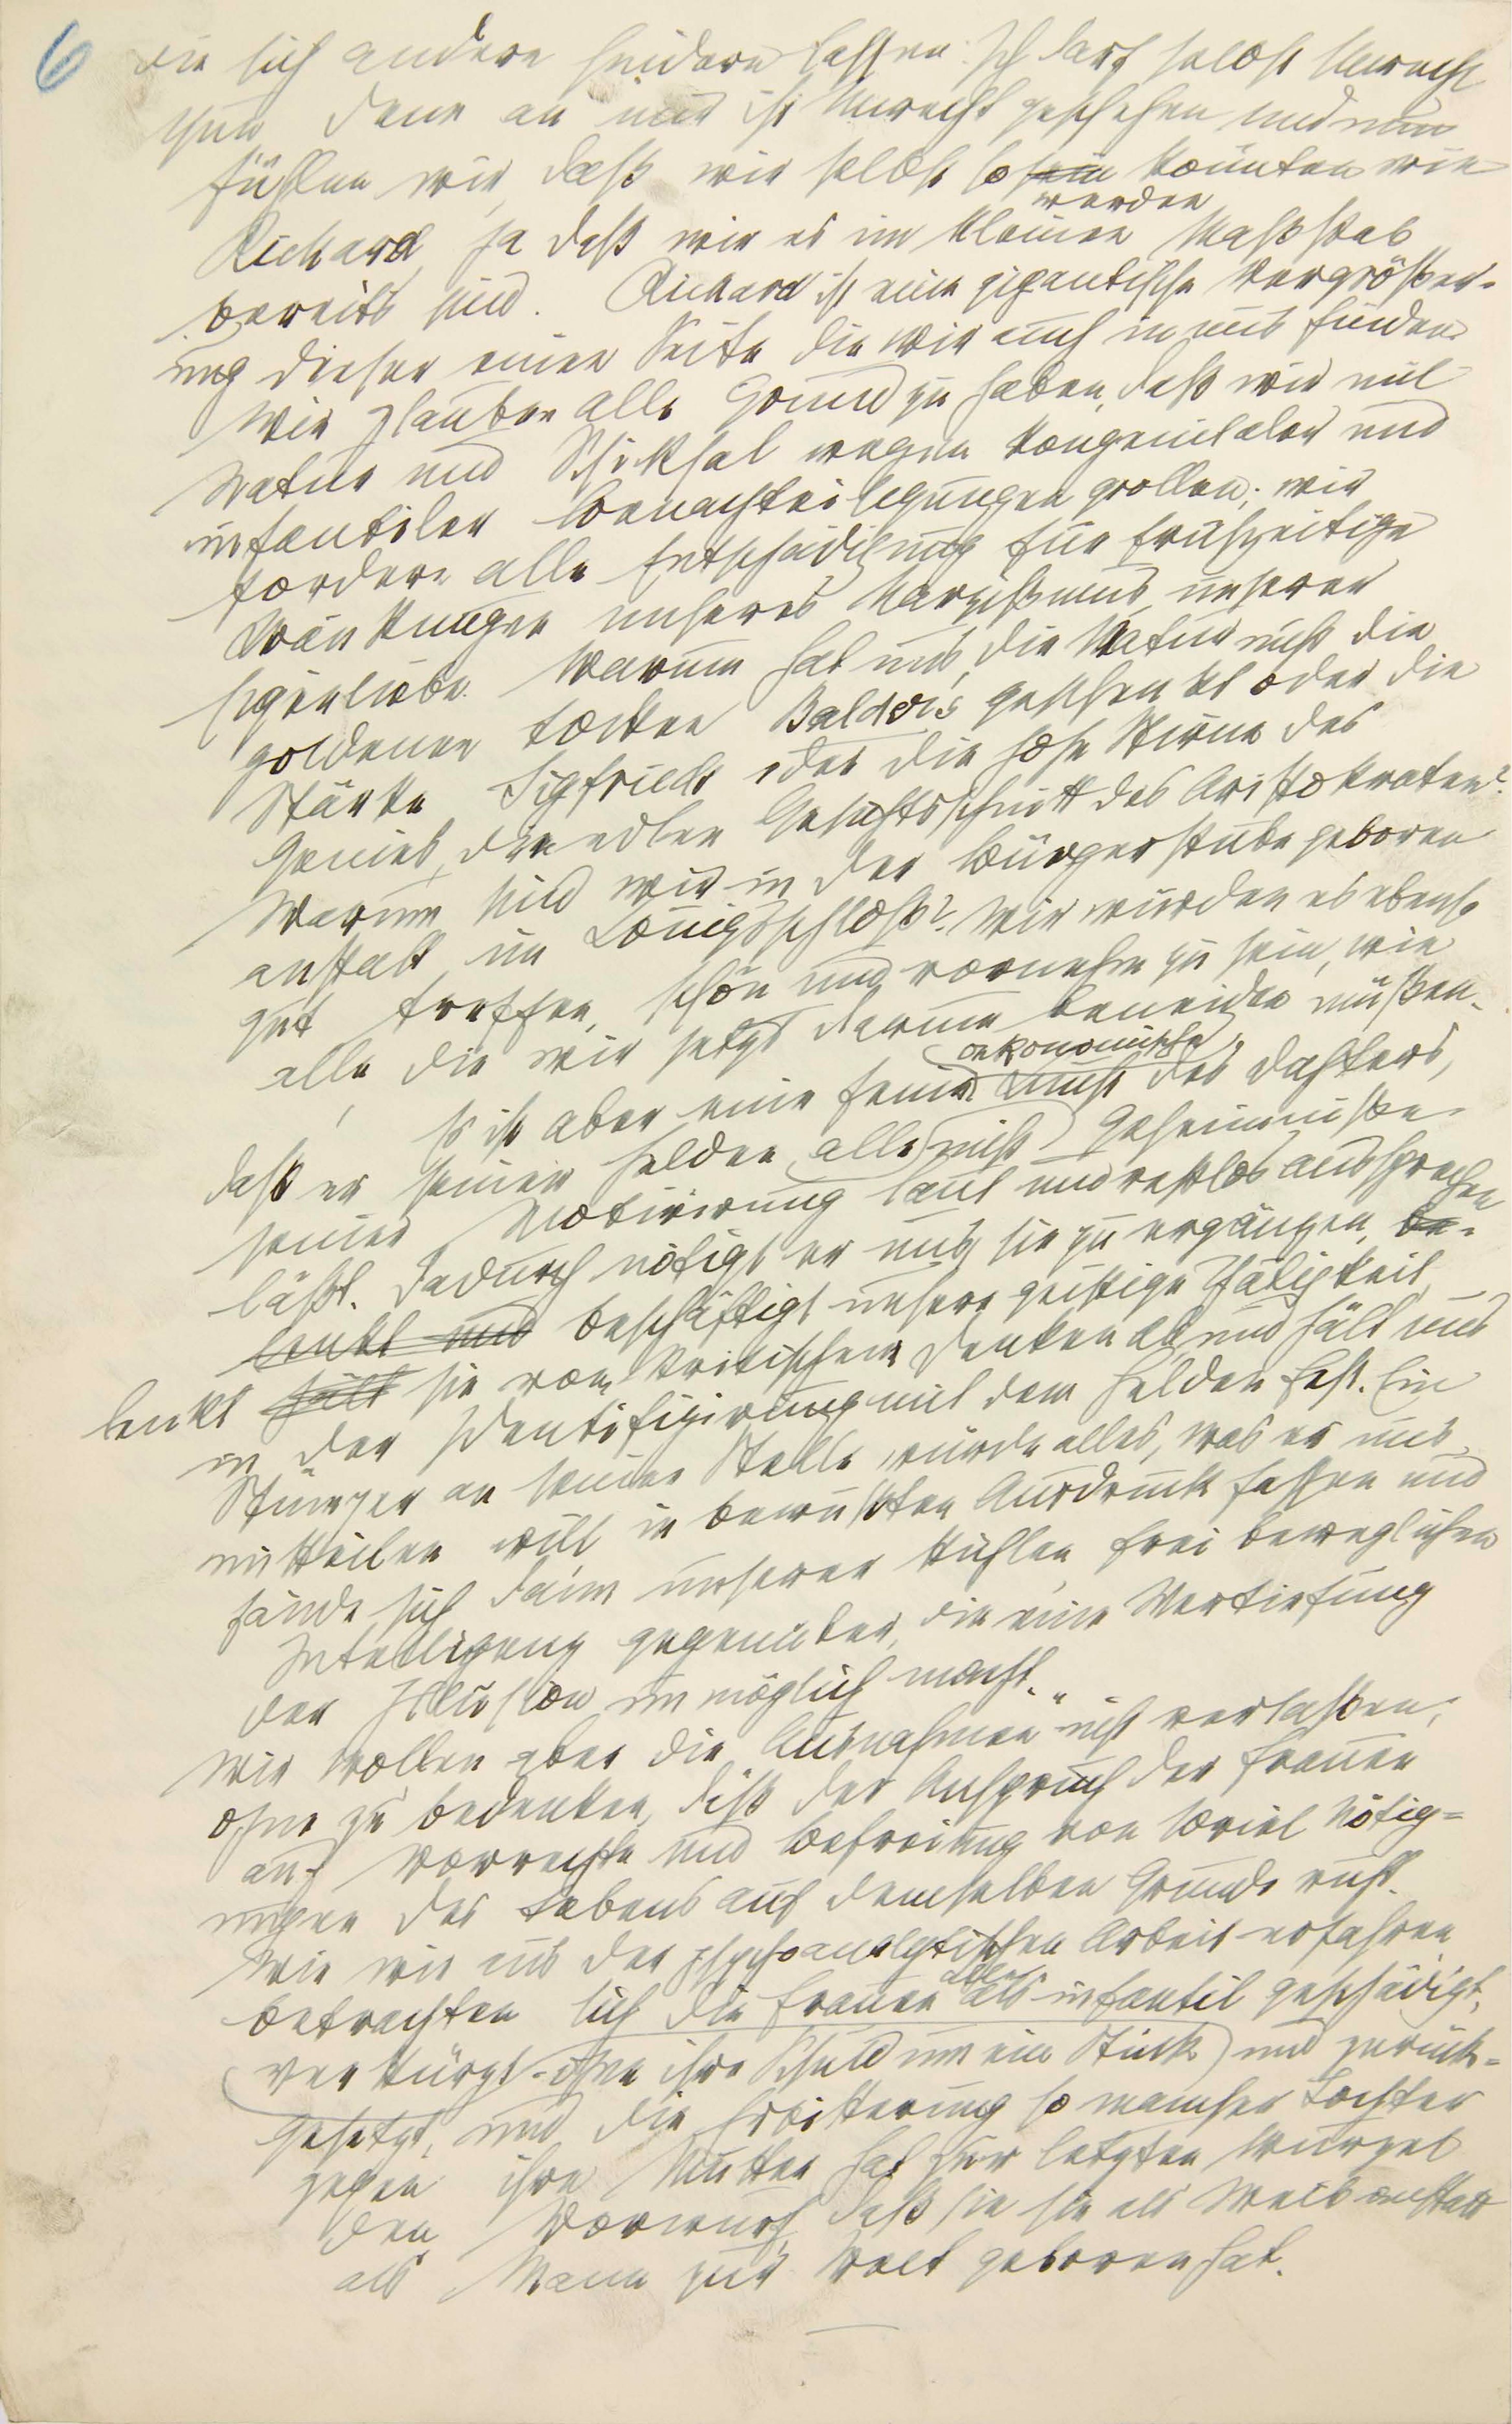 6
die sich andere hindern lassen. Ich darf selbst Unrecht
thun denn an mir ist Unrecht geschehen und nun
fühlen wir, daß wir selbst so sein könnten wie
werden
Richard, ja daß wir es im kleinen Maßstab
bereits sind. Richard ist eine gigantische Vergrößer-
ung dieser einen Seite die wir auch in uns finden.
Wir glauben alle Grund zu haben, daß wir mit
Natur und Schicksal wegen kongenitaler und
infantiler Benachteiligungen grollen; wir
fordern alle Entschädigung für frühzeitige
Kränkungen unseres Narzißmus, unserer
Eigenliebe. Warum hat uns die Natur nicht die
goldenen Locken Balders geschenkt oder die
Stärke Sigfrieds oder die hohe Stirne des
Genies, den edlen Gesichtsschnitt des Aristokraten?
Warum sind wir in der Bürgerstube geboren
anstatt im Königsschloß? Wir würden es ebenso
gut treffen, schön und vornehm zu sein, wie
alle die wir jetzt darum beneiden müßen.
oekonomische
Es ist aber eine feine Kunst des Dichters,
daß er seinen Helden alle nicht Geheimniße
seiner Motivirung laut und restlos aussprechen
läßt. Dadurch nötigt er uns, sie zu ergänzen, be-
lenkt und beschäftigt unsere geistige Thätigkeit,
lenkt hält sie vom kritischen Denken ab und hält uns
in der Identifizirung mit dem Helden fest. Ein
Stümper an seiner Stelle würde alles, was er uns
mitteilen will, in bewußten Ausdruck fassen und
fände sich dann unserer kühlen, frei beweglichen
Intelligenz gegenüber, die eine Vertiefung
der Illusion unmöglich macht.
Wir wollen aber die „Ausnahmen“ nicht verlaßen,
ohne zu bedenken, daß der Anspruch der Frauen
auf Vorrechte und Befreiung von soviel Nötig-
ungen des Lebens auf demselben Grunde ruht.
Wie wir aus der psychoanalytischen Arbeit erfahren
betrachten sich die Frauen als infantil geschädigt,
verkürzt – ohne ihre Schuld um ein Stück) und zurück-
gesetzt, und die Erbitterung so mancher Tochter
gegen ihre Mutter hat zur letzten Wurzel
den Vorwurf, daß sie sie als Weib anstatt
als Mann zur Welt geboren hat.